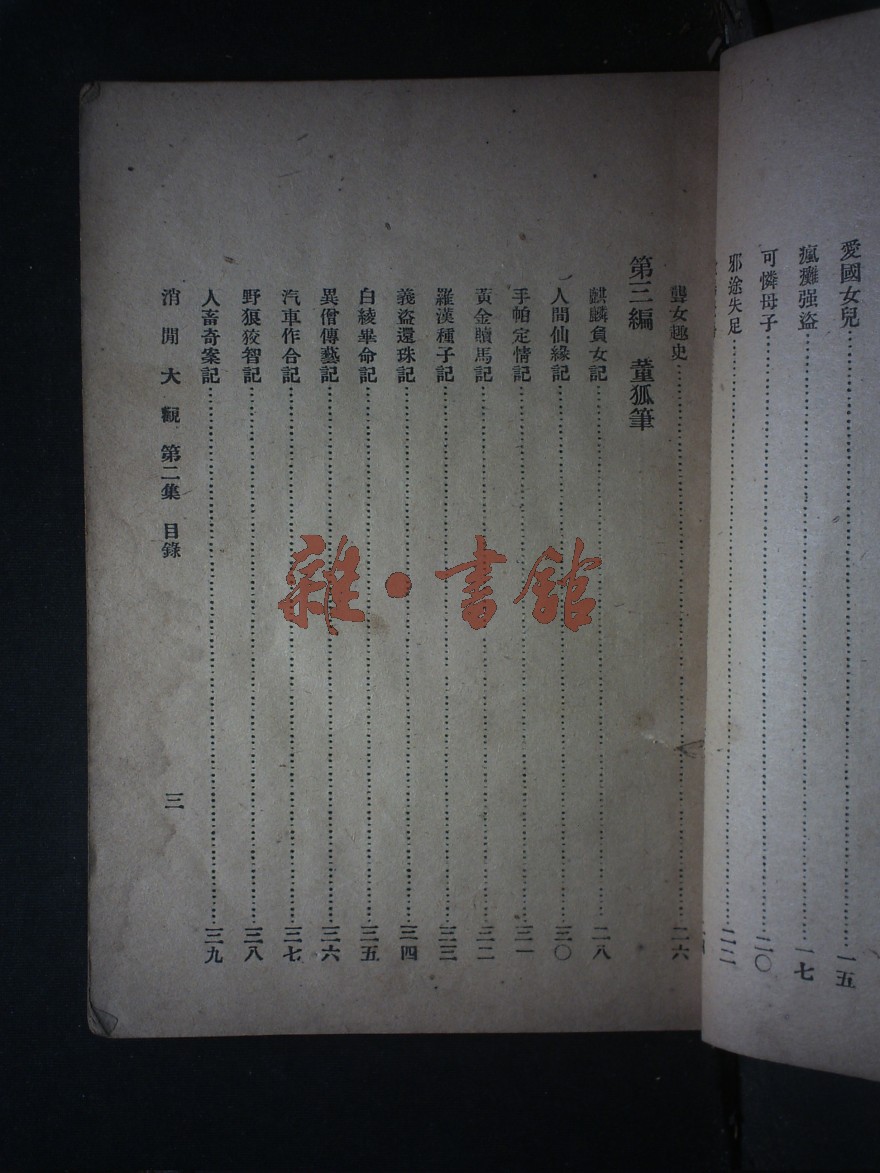 愛國女兒 一五
瘋癱强盜 一七
可憐母子 二〇
邪途失足 二二
聾女趣史 二六
第三編 董狐筆
麒麟負女記 二八
人間仙緣記 三〇
手帕定情記 三一
黃金贖馬記 三二
羅漢種子記 三三
義盜還珠記 三四
白綾畢命記 三五
異僧傳藝記 三六
汽車作合記 三七
野狼狡智記 三八
人畜奇案記 三九
消閒大觀 第二集 目錄 三
雜·書館